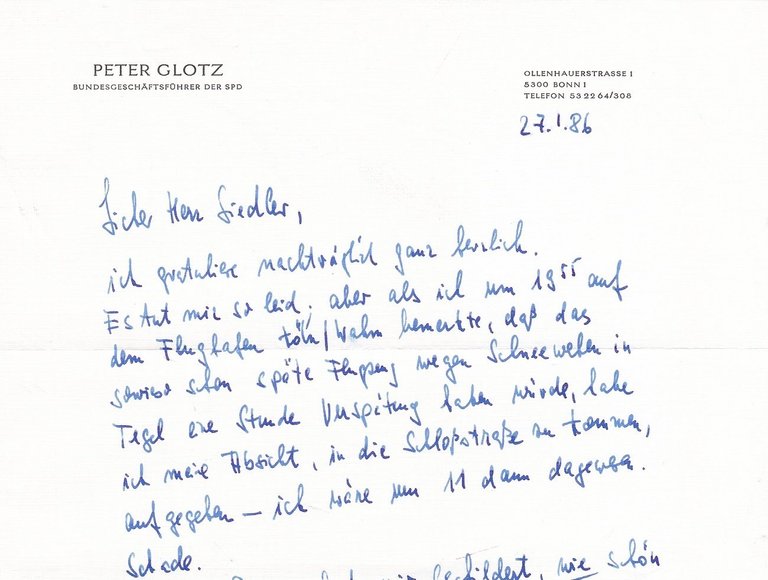 PETER GLOTZ
BUNDESGESCHÄFTSFÜHRER DER SPD
OLLENHAUERSTRASSE 1
5300 BONN 1
TELEFON 53 22 64/308
27.1.86
Lieber Herr Siedler,
ich gratuliere nachträglich ganz herzlich.
Es tut mir so leid; aber als ich um 19⁵⁵ auf
dem Flughafen Köln/Wahn bemerkte, daß das
sowieso schon späte Flugzeug wegen Schneewehen in
Tegel eine Stunde Verspätung haben würde, habe
ich meine Absicht, in die Schloßstraße zu kommen,
aufgegeben – ich wäre um 11 dann dagewesen.
Schade.
geschildert, wie schön